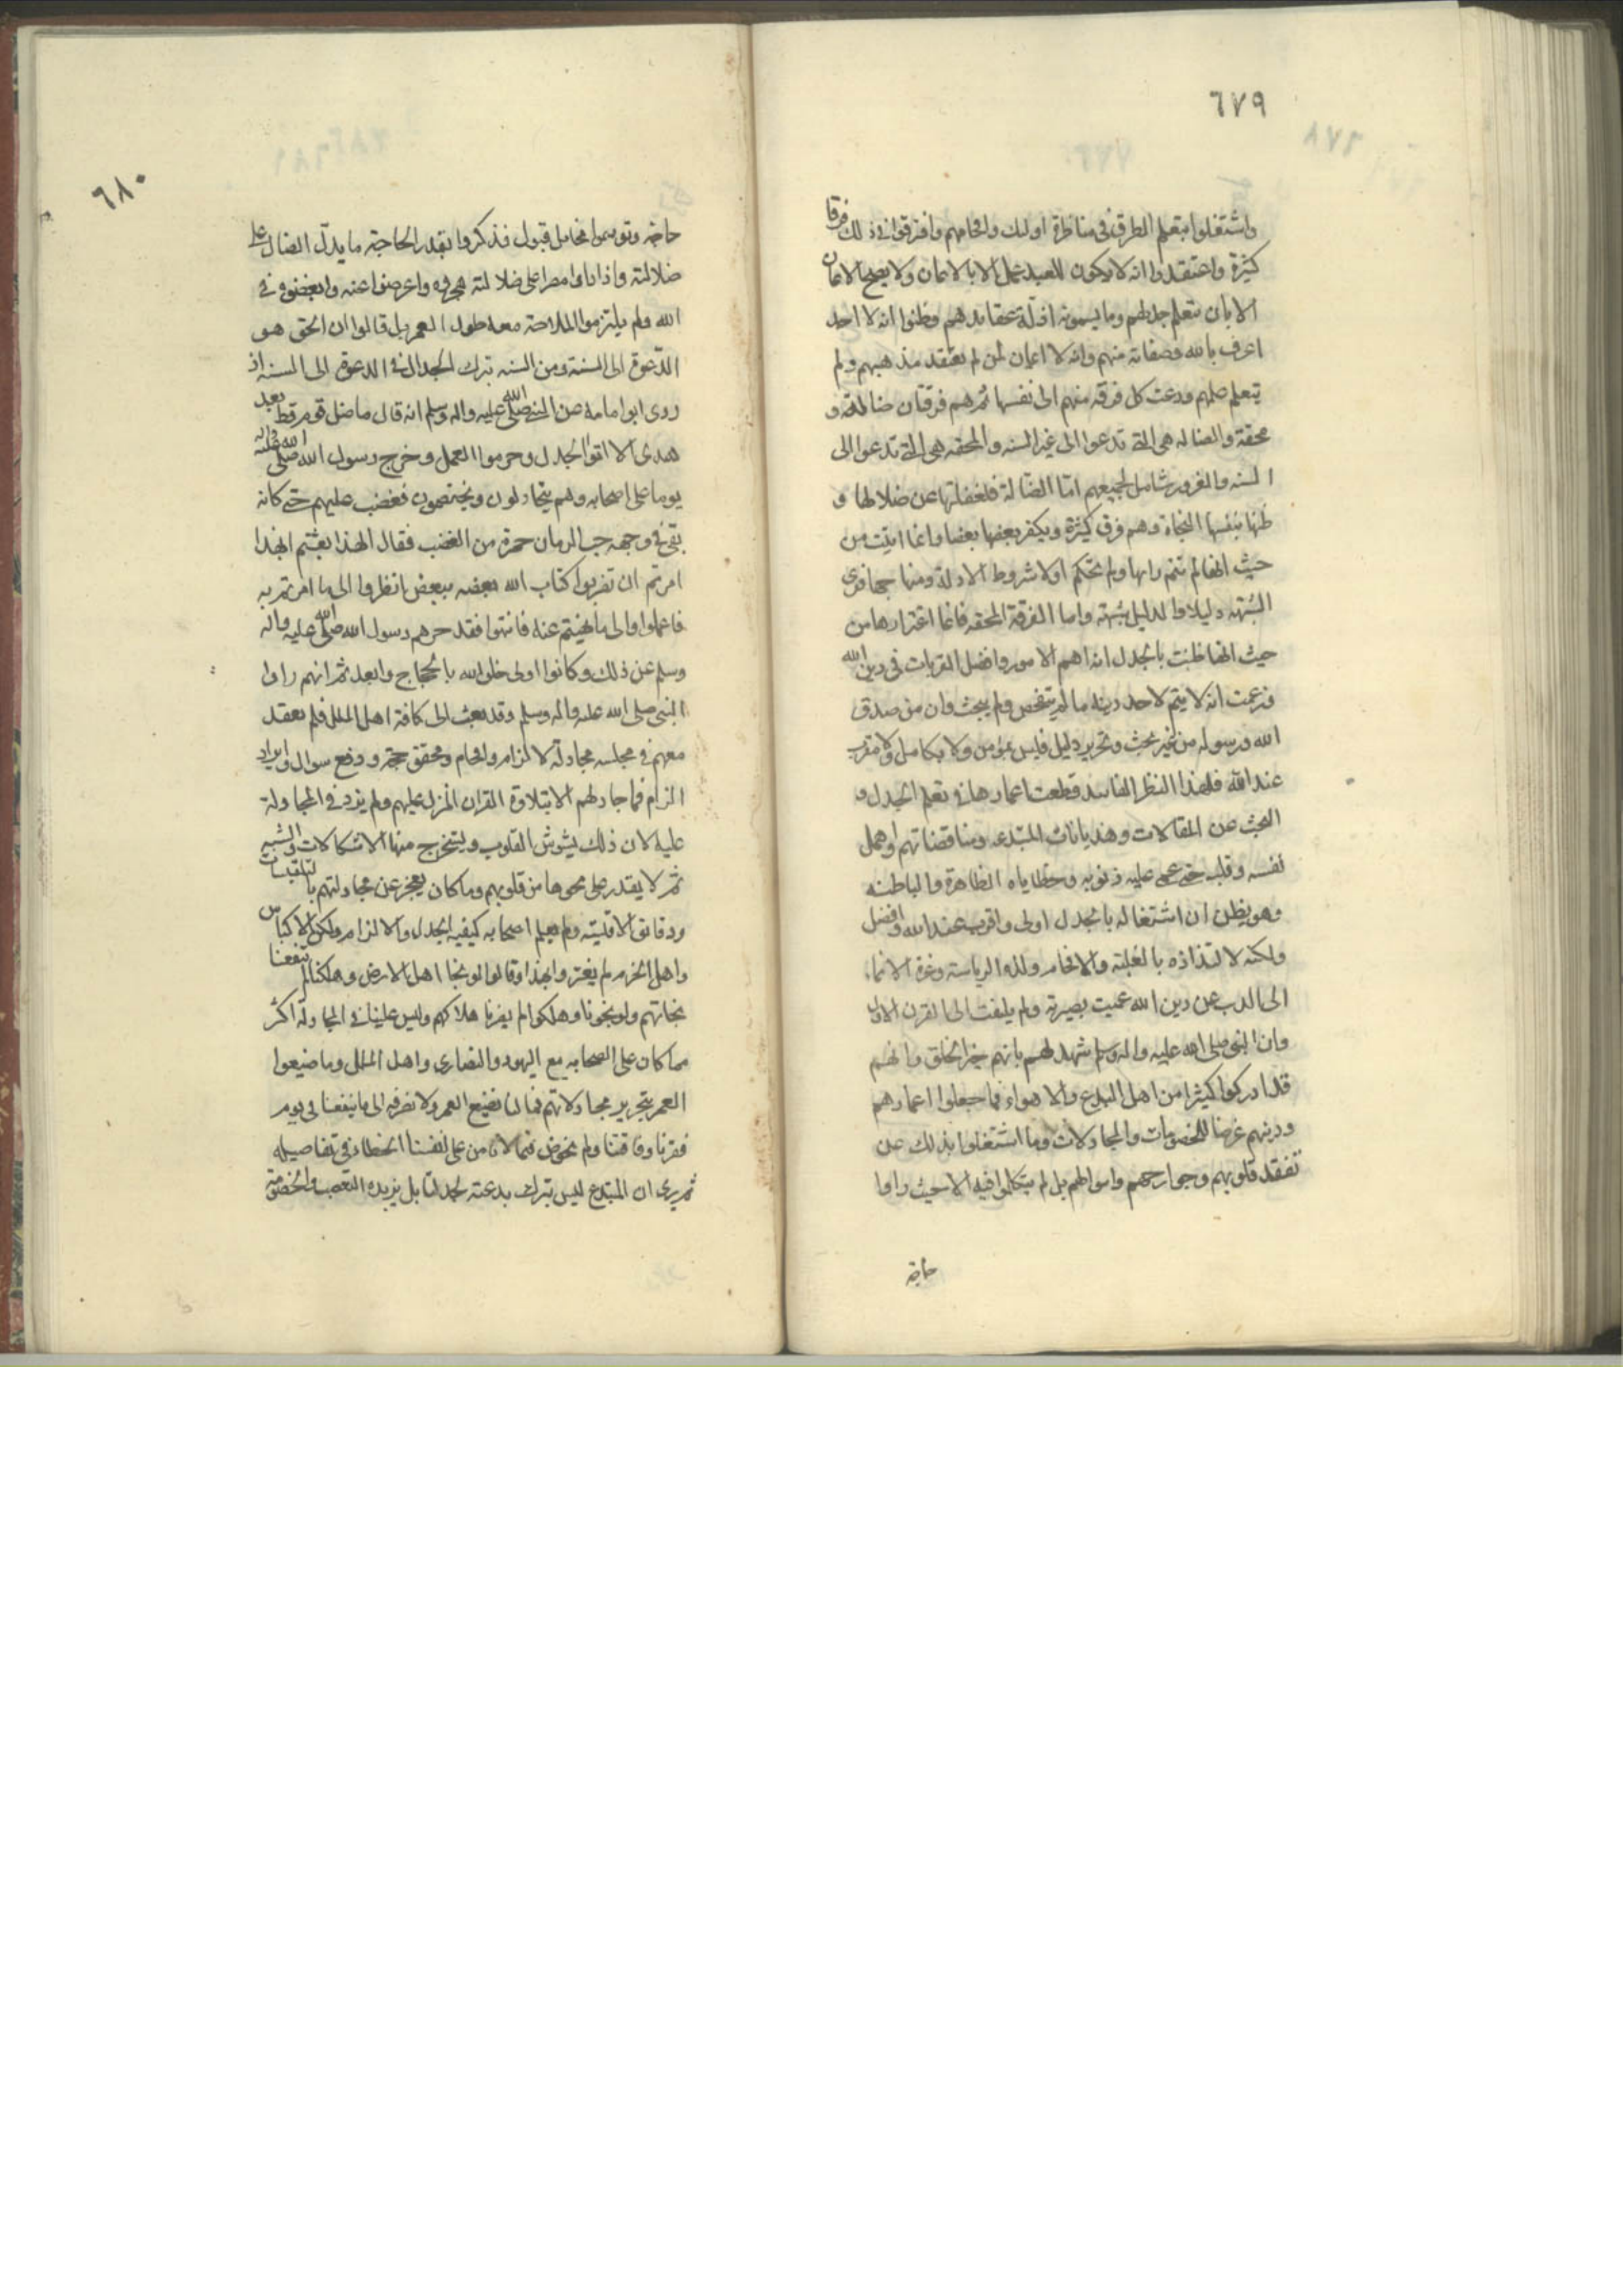 ٦٧٩
واشتغلوا بتعلم الطرق في مناظرة اولئك وافحامهم وافترقوا في ذلك فرقا
كثيرة واعتقدوا انه لا يكون للعبد عمل الا بالايمان ولا يصح الايمان
الا بان يتعلم جدلهم وما يسمونه ادلة عقايدهم وظنوا انه لا احد
اعرف بالله وصفاته منهم وانه لا ايمان لمن لم يعتقد مذهبهم ولم
يتعلم علمهم ودعت كل فرقة منهم الى نفسها ثم هم فرقتان ضالة و
محقة والضاله هى التي تدعوا الى غير السنه والمحقه هى التي تدعوا الى
السنه والغرور شامل لجميعهم امّا الضالة فلغفلتها عن ضلالها و
ظنها بنفسها النجاة وهم فرق كثيرة ويكفر بعضها بعضا وانما اتيت من
حيث انها لم تتهم رايها ولم تحكم اولا شروط الادلة ومنهاجها فرى
الشبهه دليلا والدليل شبهة واما الفرقة المحقه فانما اغترارها من
حيث انها ظنت بالجدل انه اهم الامور وافضل القربات في دين الله
فزعمت انه لا يتم لاحد دينه ما لم يتفحص ولم يبحث وان من صدق
الله ورسوله من غير بحث وتحرير دليل فليس بمؤمن ولا بكامل ولا مقرب
عند الله فلهذا النظر الفاسد قطعت اعمارها في تعلم الجدل و
البحث عن المقالات وهذيانات المبتدعه ومناقضاتهم واهمل
نفسه وقلبه حتى عمى عليه ذنوبه وخطاياه الظاهرة والباطنه
وهو يظن ان اشتغاله بالجدل اولى واقرب عند الله وافضل
ولكنه لالتذاذه بالغلبة والافحام ولذه الرياسة وعزة الانتماء
الى الذب عن دين الله عميت بصيرته ولم يلتفت الى القرن الاول
وان النبي صلى الله عليه واله وسلم شهد لهم بانهم خير الخلق وانهم
قد ادركوا كثيرا من اهل البدع والاهواء فما جعلوا اعمارهم
ودينهم غرضا للخصومات والمجادلات وما اشتغلوا بذلك عن
تفقد قلوبهم وجوارحهم واحوالهم بل لم يتكلموا فيه الا حيث راوا
حاجة
٦٨٠
حاجه وتوسموا مخايل قبول فذكروا بقدر الحاجة ما يدلّ الضال على
ضلالته واذا راوا مصرا على ضلالته هجروه واعرضوا عنه وابغضوه في
الله ولم يلتزموا الملاحة معه طول العمر بل قالوا ان الحق هو
الدّعوة الى السنة ومن السنه ترك الجدال في الدعوة الى السنه اذ
روى ابو امامه عن النبي صلى الله عليه واله وسلم انه قال ما ضل قوم قط بعد
هدى الا اتوا الجدل وحرموا العمل وخرج رسول الله صلى الله عليه واله
يوما على اصحابه وهم يتجادلون ويختصمون فغضب عليهم حتى كانه
تفئ في وجهه حب الرمان حمرة من الغضب فقال الهذا بعثتم الهذا
امرتم ان تضربوا كتاب الله بعضه ببعض انظروا الى ما امرتم به
فاعملوا والى ما نهيتم عنه فانتهوا فقد حرهم رسول الله صلى الله عليه واله
وسلم عن ذلك وكانوا اولى خلق الله بالحجاج والجدل ثم انهم راوا
النبي صلى الله عليه واله وسلم وقد بعث الى كافة اهل الملل فلم يقعد
معهم في مجلسه مجادلة لالزام وافحام وتحقق حجة ودفع سوال وايراد
الزام فما جادلهم الا بتلاوة القران المنزل عليهم ولم يزد في المجادلة
عليه لان ذلك يشوش القلوب ويستخرج منها الاشكالات والشبه
ثم لا يقدر على محوها من قلوبهم وما كان يعجز عن مجادلتهم بالتقيسات
ودقائق الاقيسة ولم يعلم اصحابه كيفيه الجدل والالزام ولكن الاكياس
واهل الحزم لم يغتروا بهذا وقالوا لو نجا اهل الارض وهلكنا لم تنفعنا
نجاتهم ولو نجونا وهلكوا لم يضرنا هلاكهم وليس علينا في المجادلة اكثر
مما كان على الصحابه مع اليهود والنصارى واهل الملل وما ضيعوا
العمر بتحرير مجادلاتهم فما لنا نضيع العمر ولا نصرفه الى ما ينفعنا في يوم
فقرنا وفاقتنا ولم نخوض فيما لا نامن على انفسنا الخطاء في تفاصيله
ثم يرى ان المبتدع ليس يترك بدعته لجدلنا بل يزيده التعصب والخصومة